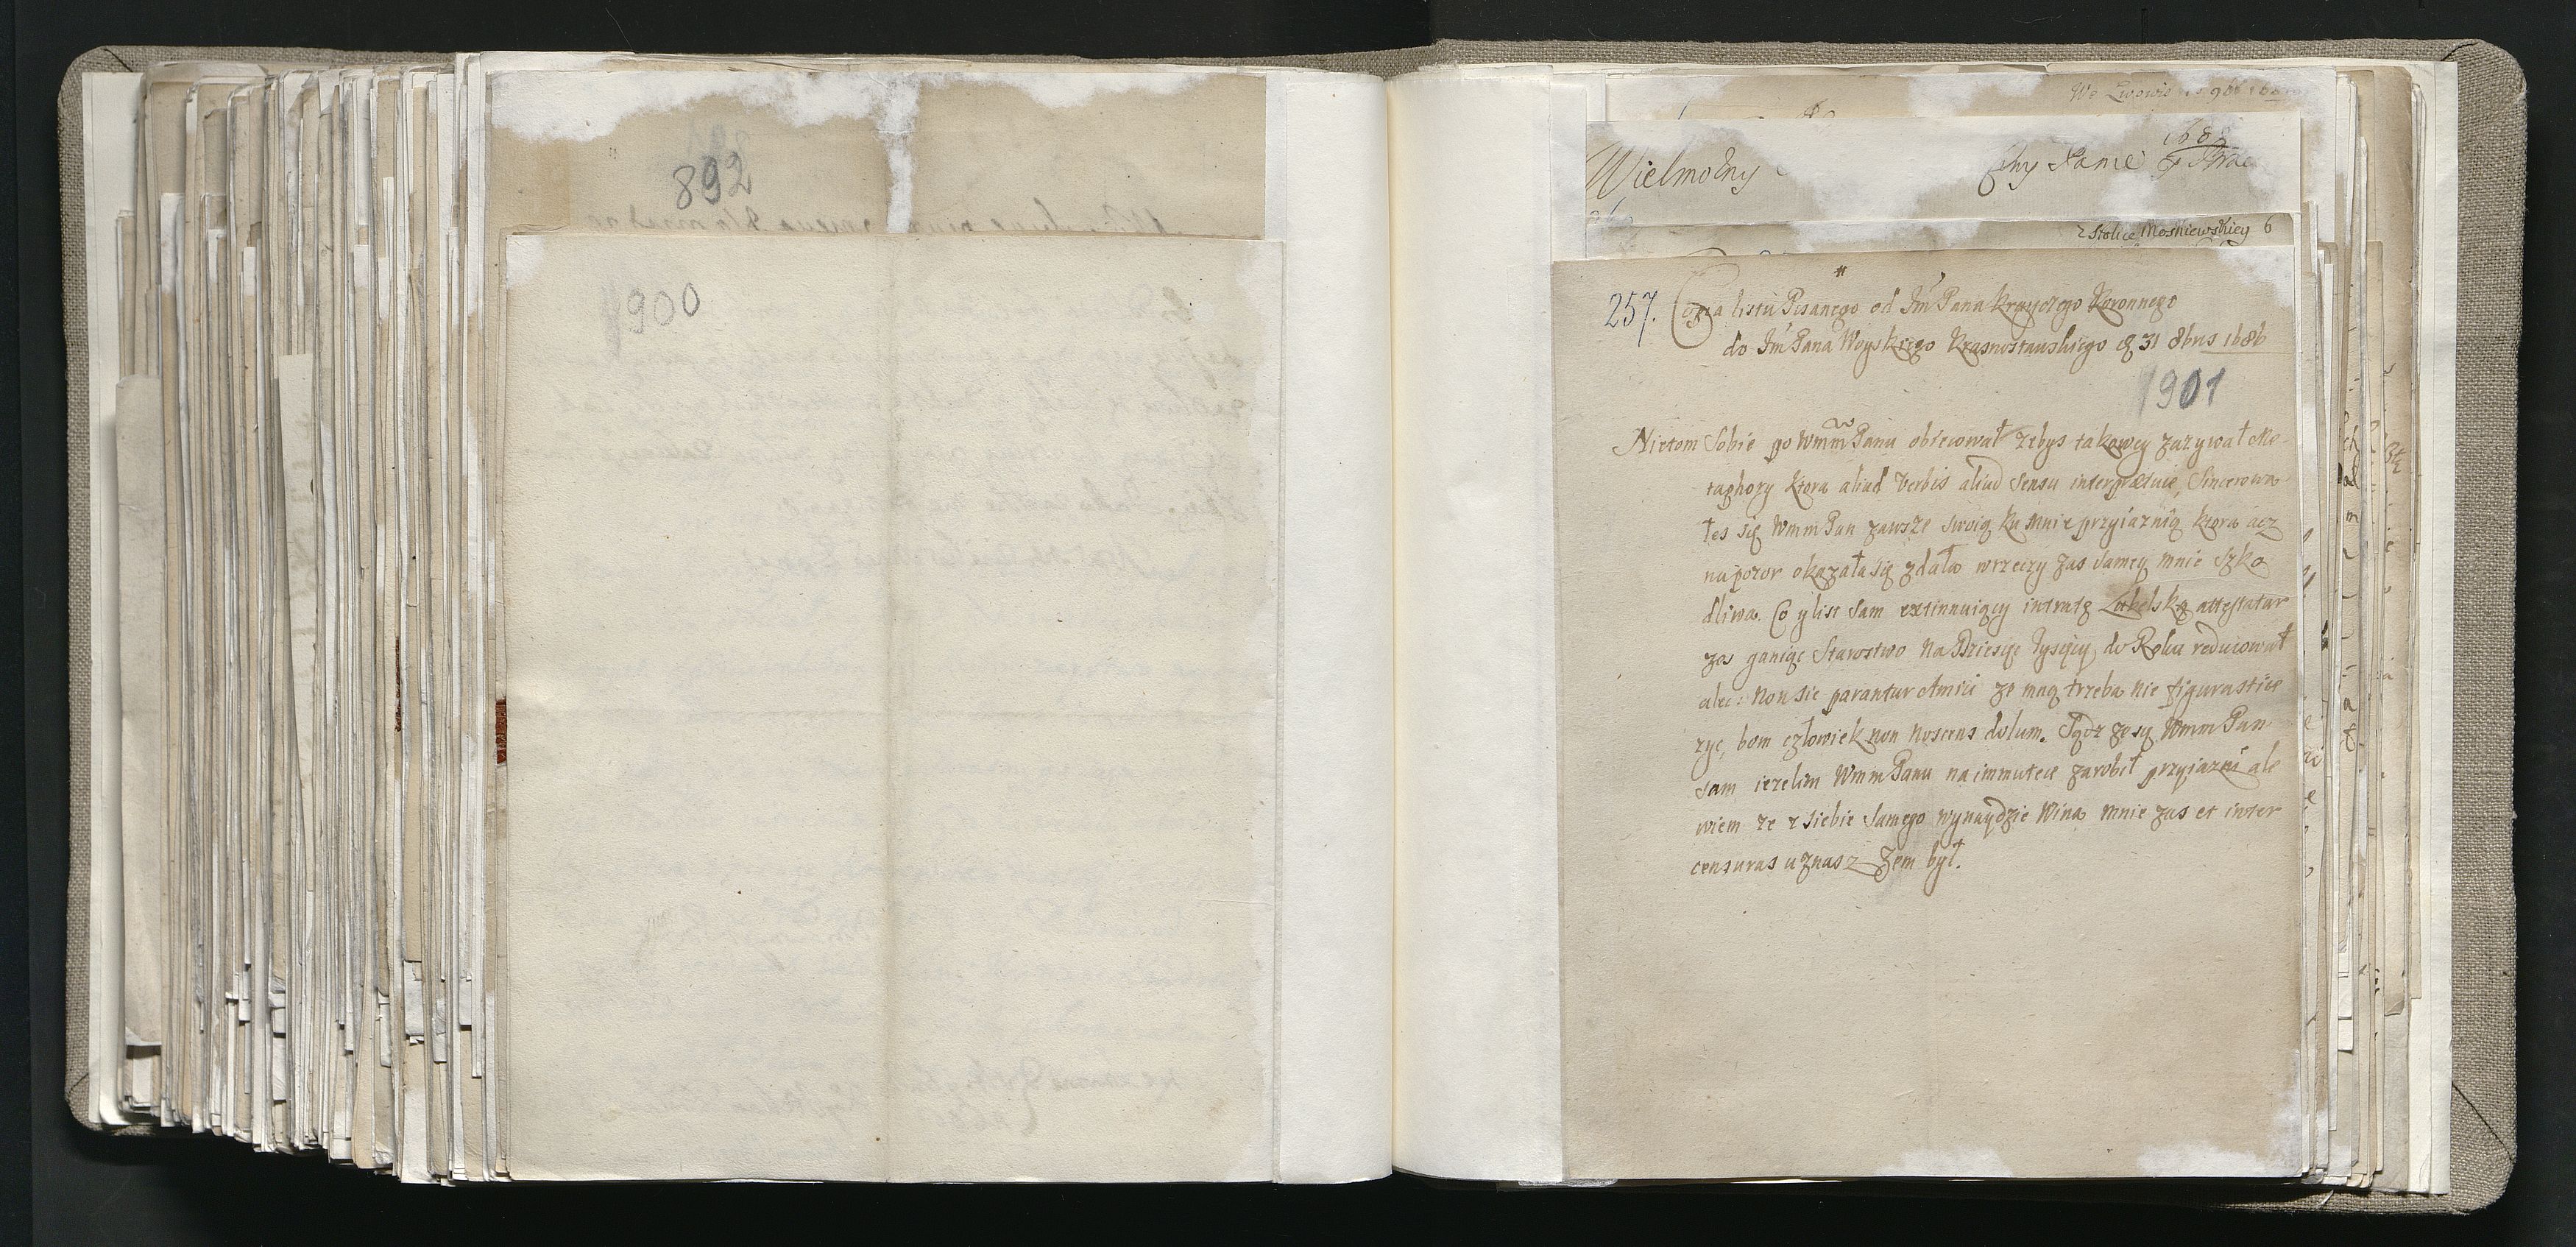 892
900
We Lwowie
1688
Wielmożny
Panie
z Stolice Moskiewskiey 6
257. Copia listu Pisanego od Jm Pana Krayczego Koronnego
do Jm Pana Woyskiego Krasnostawskiego d 31 8bris 1686
901
Nietom Sobie po Wmm Panu obiecował zebys takowey zazywał Me-
taphory ktora aliud Verbis aliud Sensu interpretuie, Sincerowa
łes się Wmm Pan zawsze swoią ku mnie przyiaznią ktora acz
na pozor okazała się zdała wrzeczy zas samey mnie szko
dliwa. Co y list sam extinnuiący intratę Lubelską attestatur
zes ganiąc Starostwo na Dziesięc Tysięcy do Roku reducował
alec: non sic parantur Amici ze mną trzeba nie figuristice
zyc, bom człowiek non noscens dolum. Sądz ze sy Wmm Pan
sam iezelim Wmm Panu na immutece zarobił przyiazni ale
wiem ze z siebie Samego wynaydzie Winą mnie zas et inter
censuras uznasz Zem był.